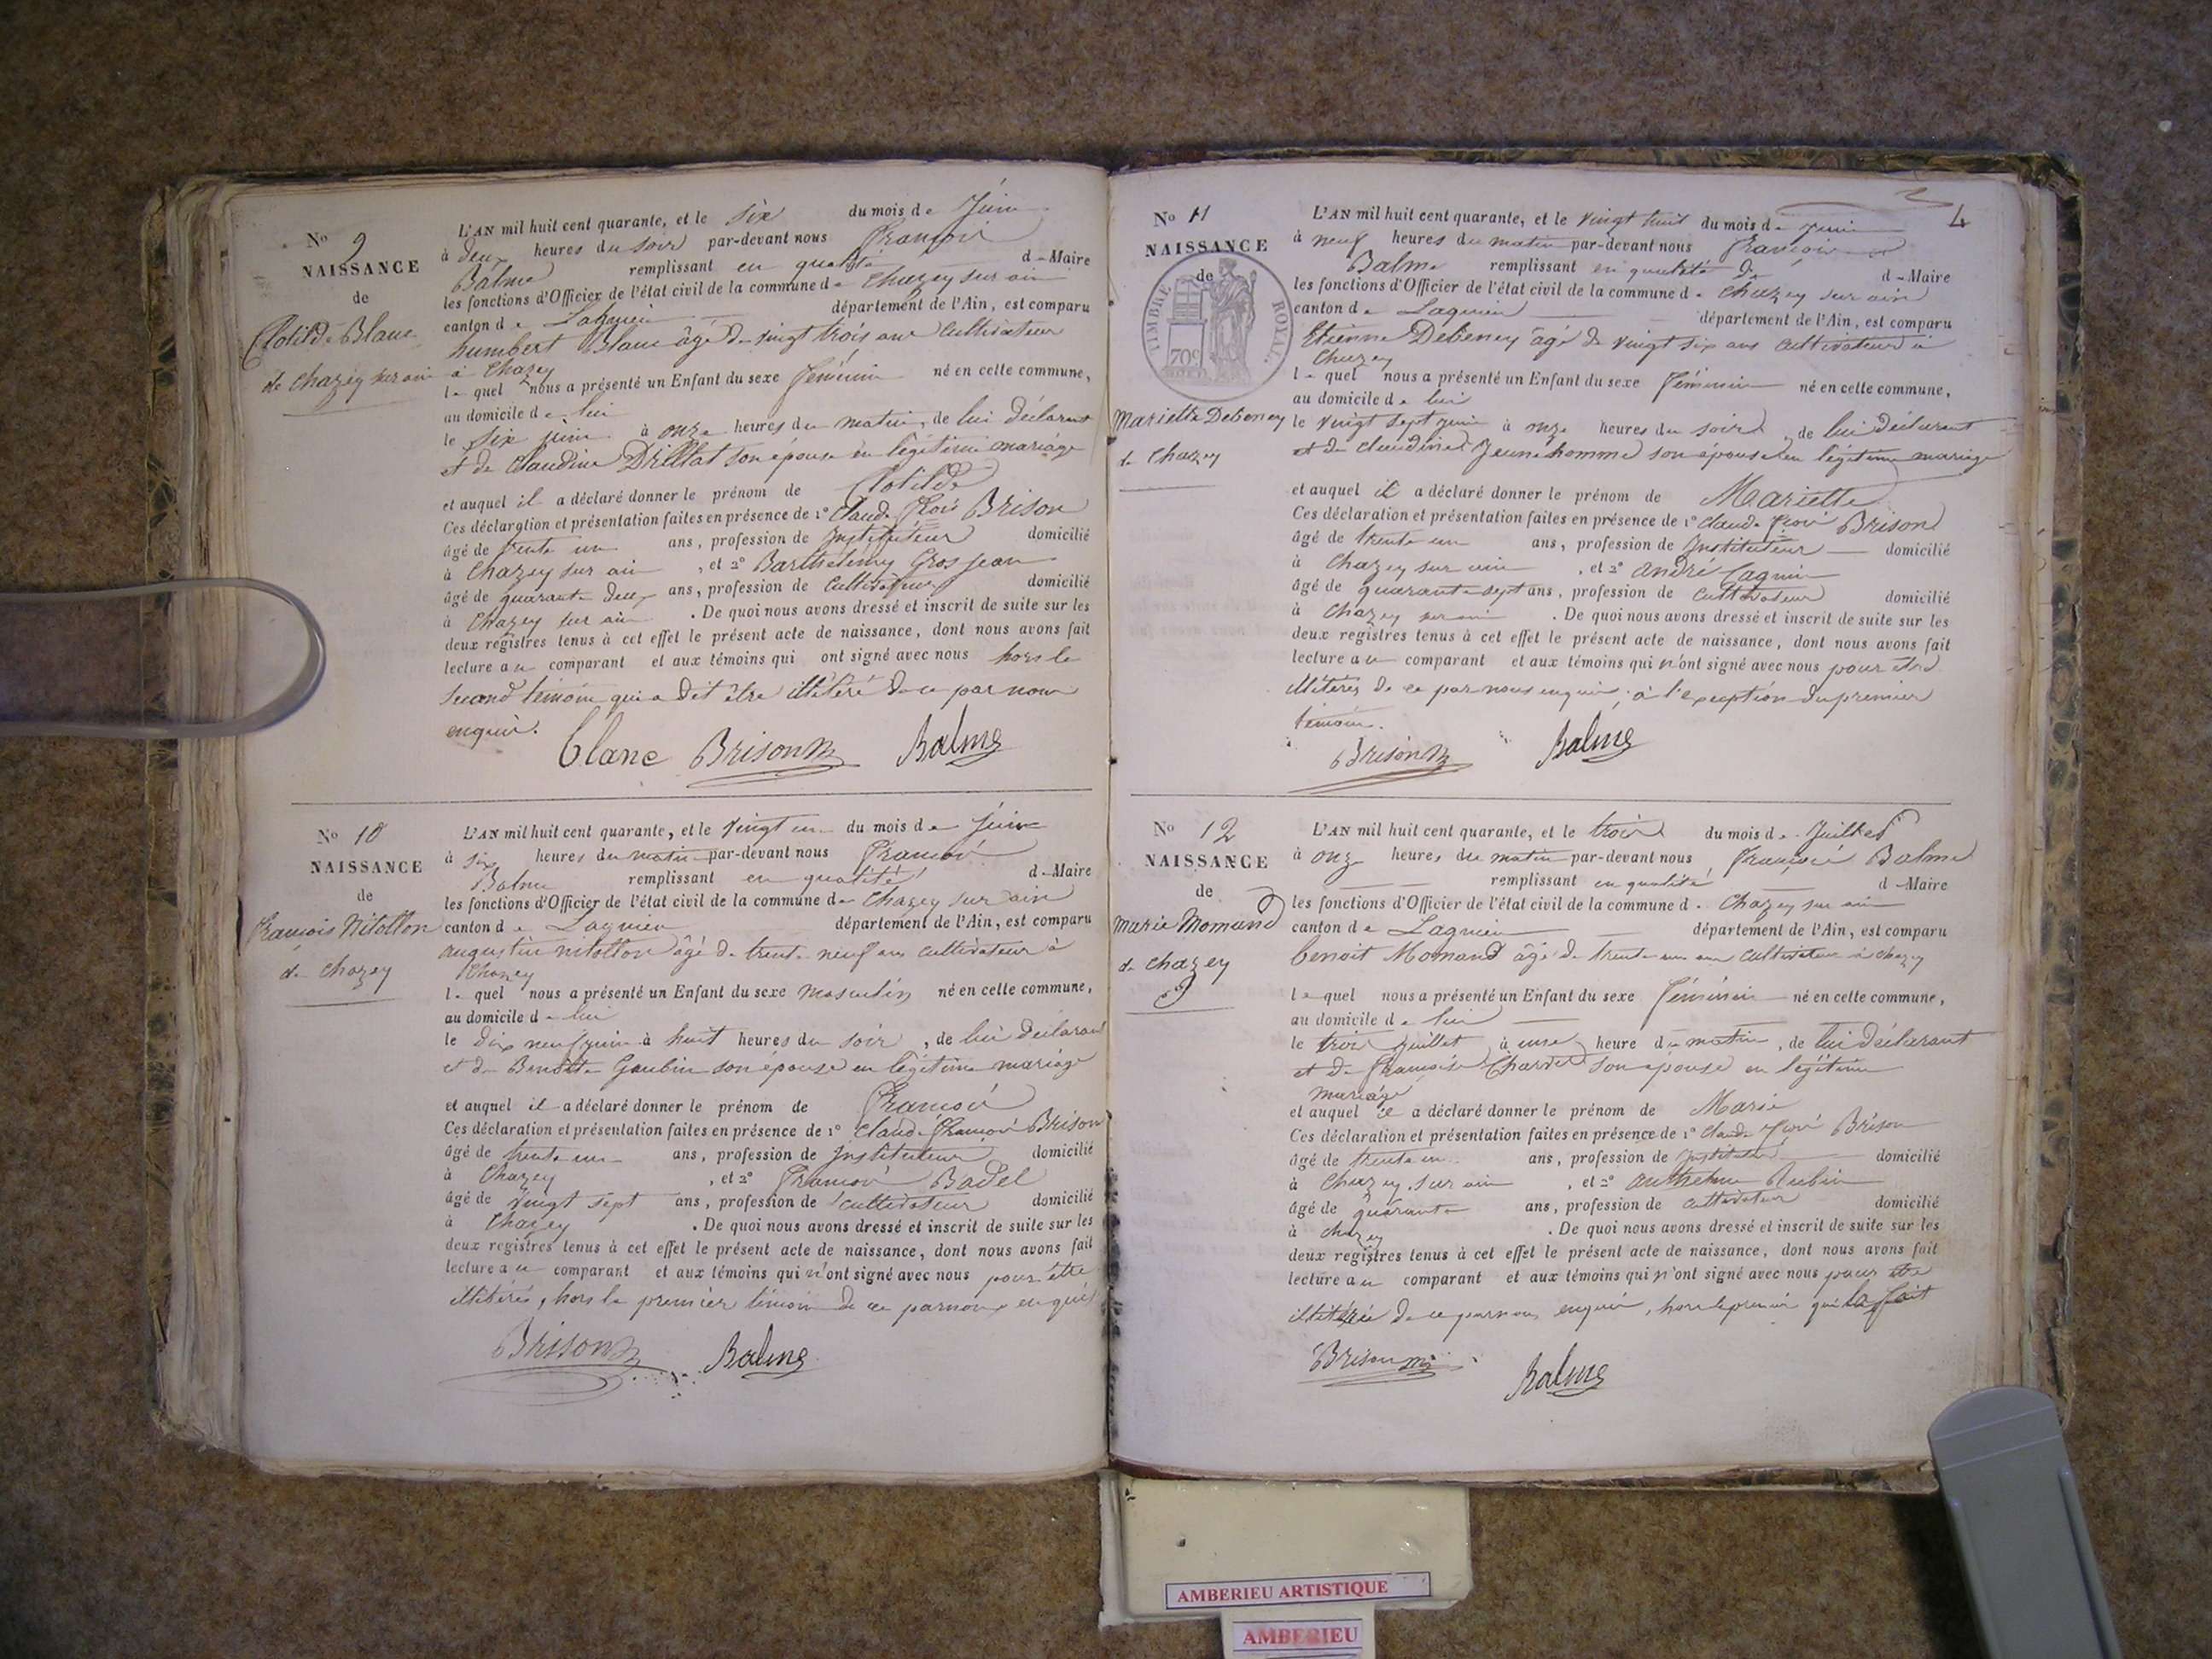 No 9
NAISSANCE
de
Clotilde Blanc
de Chazey sur ain
L'AN mil huit cent quarante, et le six du mois de Juin
à deux heures du soir par-devant nous François
Balme remplissant en qualité d - Maire
les fonctions d'Officier de l'état civil de la commune de Chazey sur ain
canton de Lagnieu département de l'Ain, est comparu
humbert Blanc âgé de vingt trois ans Cultivateur
à Chazey
le quel nous a présenté un Enfant du sexe féminin né en cette commune,
au domicile de lui
le six juin à onze heures du matin, de lui déclarant
et de Claudine Drillat son épouse en légitime mariage
et auquel il a déclaré donner le prénom de Clotilde
Ces déclaration et présentation faites en présence de 1° Claude frois Brison
âgé de trente un ans, profession de Instituteur domicilié
à Chazey sur ain, et 2° Barthelemy Grosjean
âgé de quarante deux ans, profession de Cultivateur domicilié
à Chazey sur ain. De quoi nous avons dressé et inscrit de suite sur les
deux registres tenus à cet effet le présent acte de naissance, dont nous avons fait
lecture au comparant et aux témoins qui ont signé avec nous hors le
second témoin qui a dit être illitéré de ce par nous
enquis.
Blanc Brison Balme
No 10
NAISSANCE
de
François Nitollon
de Chazey
L'AN mil huit cent quarante, et le vingt un du mois de Juin
à six heures du matin par-devant nous François
Balme remplissant en qualité d - Maire
les fonctions d'Officier de l'état civil de la commune de Chazey sur ain
canton de Lagnieu département de l'Ain, est comparu
augustin nitollon âgé de trente neuf ans cultivateur à
Chazey
le quel nous a présenté un Enfant du sexe masculin né en cette commune,
au domicile de lui
le dix neuf juin à huit heures du soir, de lui déclarant
et de Benoite Gaubin son épouse en légitime mariage
et auquel il a déclaré donner le prénom de François
Ces déclaration et présentation faites en présence de 1° Claude François Brison
âgé de trente un ans, profession de Instituteur domicilié
à Chazey, et 2° François Badel
âgé de vingt sept ans, profession de cultivateur domicilié
à Chazey. De quoi nous avons dressé et inscrit de suite sur les
deux registres tenus à cet effet le présent acte de naissance, dont nous avons fait
lecture au comparant et aux témoins qui n'ont signé avec nous pour être
illitérés, hors le premier témoin de ce par nous enquis
Brison Balme
4
No 11
NAISSANCE
de
TIMBRE ROYAL.
70c
Mariette Debeney
de Chazey
L'AN mil huit cent quarante, et le vingt huit du mois de juin
à neuf heures du matin par-devant nous François
Balme remplissant en qualité de d - Maire
les fonctions d'Officier de l'état civil de la commune de Chazey sur ain
canton de Lagnieu département de l'Ain, est comparu
Etienne Debeney âgé de vingt six ans cultivateur à
Chazey
le quel nous a présenté un Enfant du sexe féminin né en cette commune,
au domicile de lui
le vingt sept juin à onze heures du soir, de lui déclarant
et de claudine Jeunehomme son épouse en légitime mariage
et auquel il a déclaré donner le prénom de Mariette
Ces déclaration et présentation faites en présence de 1° Claude frois Brison
âgé de trente un ans, profession de Instituteur domicilié
à Chazey sur ain, et 2° andré Cagnin
âgé de quarante sept ans, profession de cultivateur domicilié
à Chazey sur ain. De quoi nous avons dressé et inscrit de suite sur les
deux registres tenus à cet effet le présent acte de naissance, dont nous avons fait
lecture au comparant et aux témoins qui n'ont signé avec nous pour être
illitérés de ce par nous enquis, à l'exception du premier
témoin.
Brison Balme
No 12
NAISSANCE
de
Marie Momand
de Chazey
L'AN mil huit cent quarante, et le trois du mois de Juillet
à onze heures du matin par-devant nous François Balme
remplissant en qualité d - Maire
les fonctions d'Officier de l'état civil de la commune de Chazey sur ain
canton de Lagnieu département de l'Ain, est comparu
benoit Momand âgé de trente un ans cultivateur à chazey
le quel nous a présenté un Enfant du sexe féminin né en cette commune,
au domicile de lui
le trois juillet à une heure du matin, de lui déclarant
et de françoise Charvet son épouse en légitime
mariage
et auquel il a déclaré donner le prénom de Marie
Ces déclaration et présentation faites en présence de 1° Claude frois Brison
âgé de trente un ans, profession de Instituteur domicilié
à Chazey sur ain, et 2° anthelme Rubin
âgé de quarante ans, profession de cultivateur domicilié
à chazey. De quoi nous avons dressé et inscrit de suite sur les
deux registres tenus à cet effet le présent acte de naissance, dont nous avons fait
lecture au comparant et aux témoins qui n'ont signé avec nous pour être
illitérés de ce par nous enquis, hors le premier qui la fait
Brison Balme
AMBERIEU ARTISTIQUE
AMBERIEU